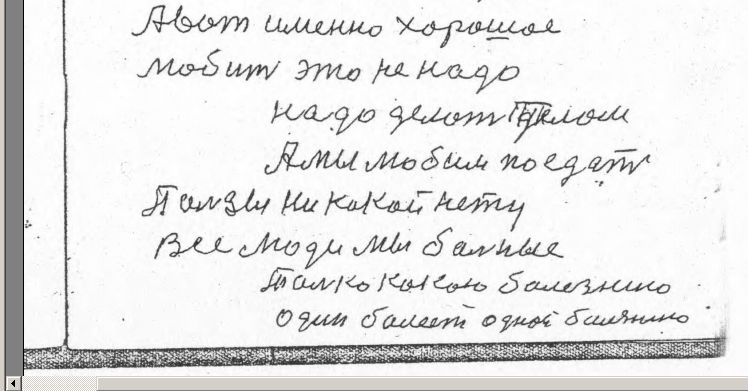 Авот именно хорошое
любит это не надо
надо делат
А мы любим поедат
Ползы никакой нету
Все люди мы балные
Толко какою балезнию
один балеет одной балзнию